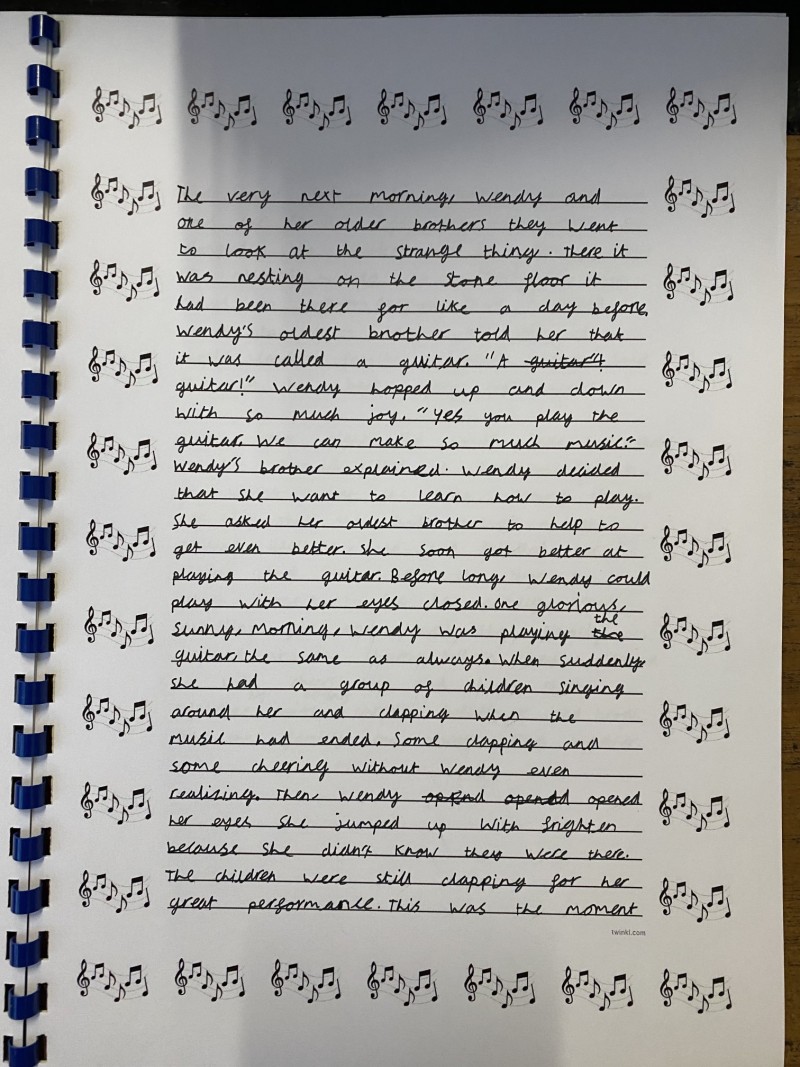 The very next morning, Wendy and
one of her older brothers they went
to look at the strange thing. There it
was resting on the stone floor it
had been there for like a day before.
Wendy's oldest brother told her that
it was called a guitar. "A guitar"!
guitar!" Wendy hopped up and down
with so much joy. "Yes you play the
guitar. We can make so much music."
Wendy's brother explained. Wendy decided
that she want to learn how to play.
She asked her oldest brother to help to
get even better. She soon got better at
playing the guitar. Before long, Wendy could
play with her eyes closed. One glorious,
the
sunny, morning, Wendy was playing the
guitar, the same as always. When suddenly
she had a group of children singing
around her and clapping when the
music had ended. Some clapping and
some cheering without Wendy even
realising. Then, Wendy opened
her eyes she jumped up with frighten
because she didn't know they were there.
The children were still clapping for her
great performance. This was the moment
twinkl.com